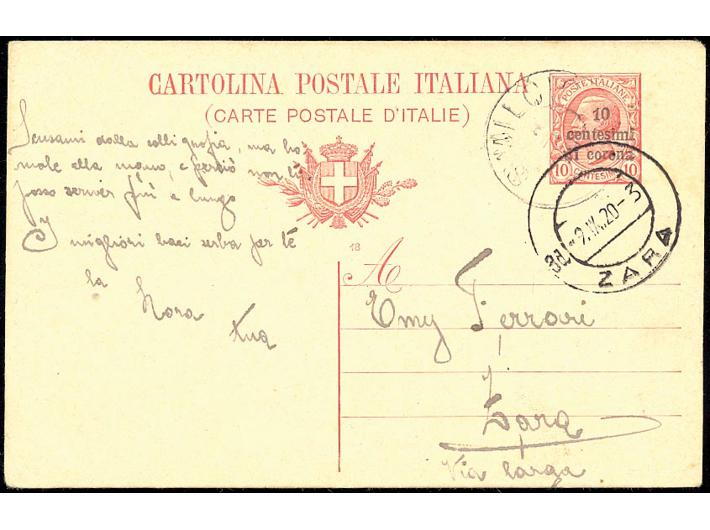 CARTOLINA POSTALE ITALIANA
(CARTE POSTALE D'ITALIE)
POSTE ITALIANE
10
centesimi
di corona
10 CENTESIMI 10
Scusami della calligrafia, ma ho
male alla mano, e perciò non ti
posso scriver più a lungo
I migliori baci serba per té
la
Nora
tua
18
A
Emy Ferrari
Zara
Via larga
-9.IV.20-3
ZARA